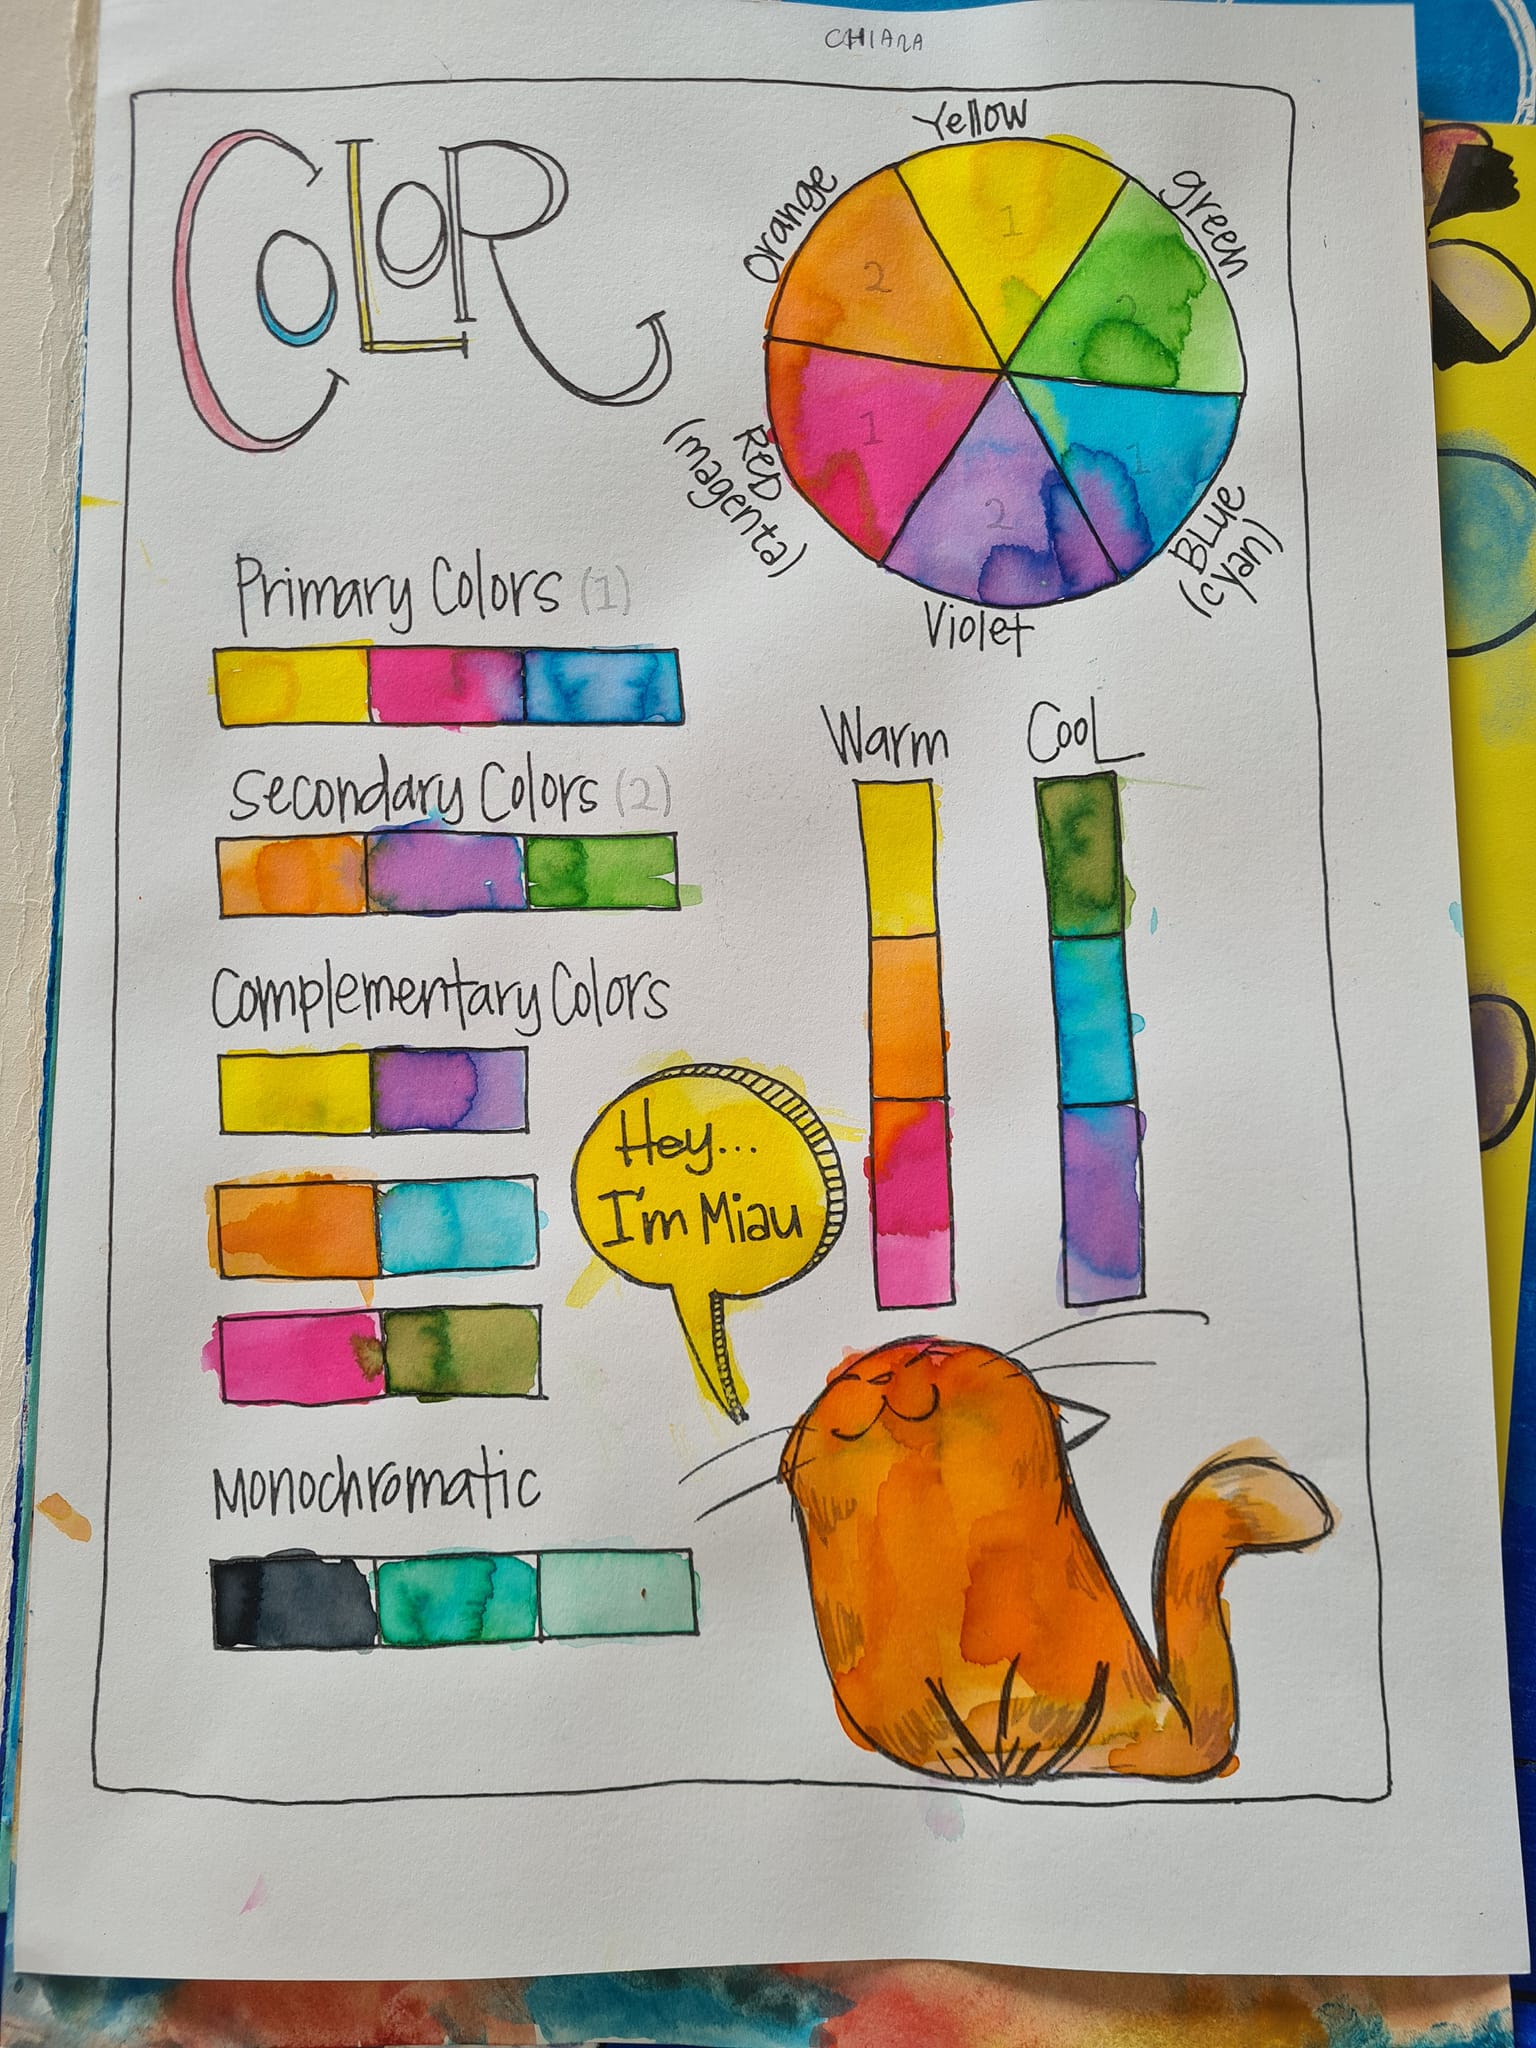 CHIARA
COLOR
Yellow
Orange
green
1
2
2
1
1
2
RED
(magenta)
BLUE
(cyan)
Violet
Primary Colors (1)
Secondary Colors (2)
Complementary Colors
Monochromatic
Warm
Cool
Hey...
I'm Miau